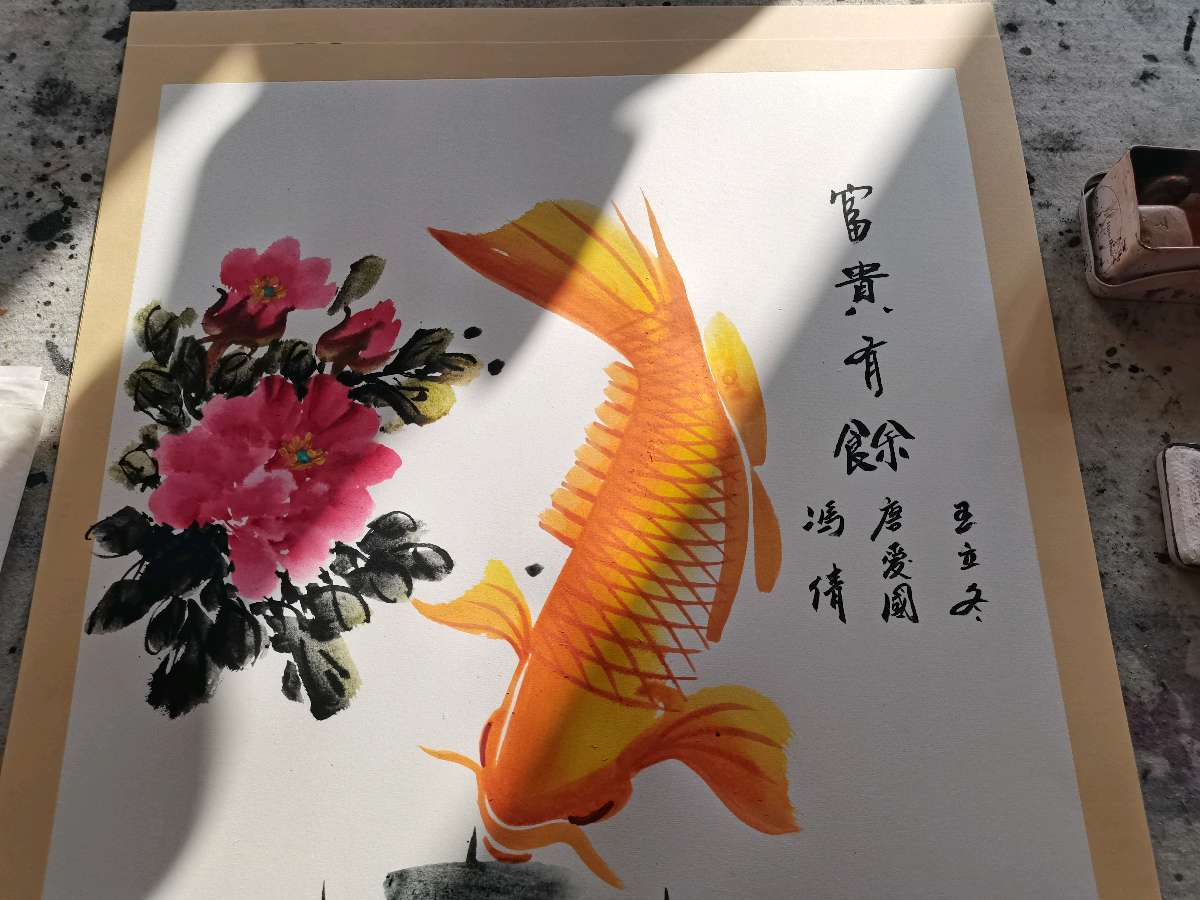 富貴有餘
王立冬
唐愛國
馮倩